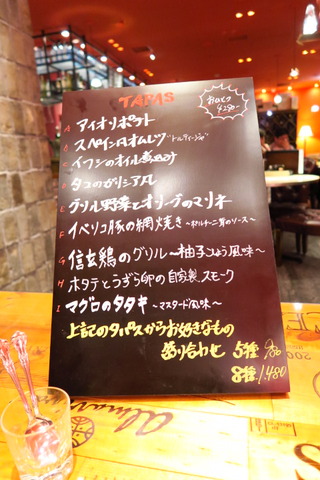 TAPAS
おひとつ
¥290-
A アイオリポテト
B スペイン風オムレツ〝トルティージャ〟
C イワシのオイル煮込み
D タコのガリシア風
E グリル野菜とオリーブのマリネ
F イベリコ豚の網焼き ～ポルチーニ茸のソース～
G 信玄鶏のグリル ～柚子こしょう風味～
H ホタテとうずら卵の自家製スモーク
I マグロのタタキ ～マスタード風味～
上記のタパスからお好きなもの
盛り合わせ 5種 980
8種 1,480